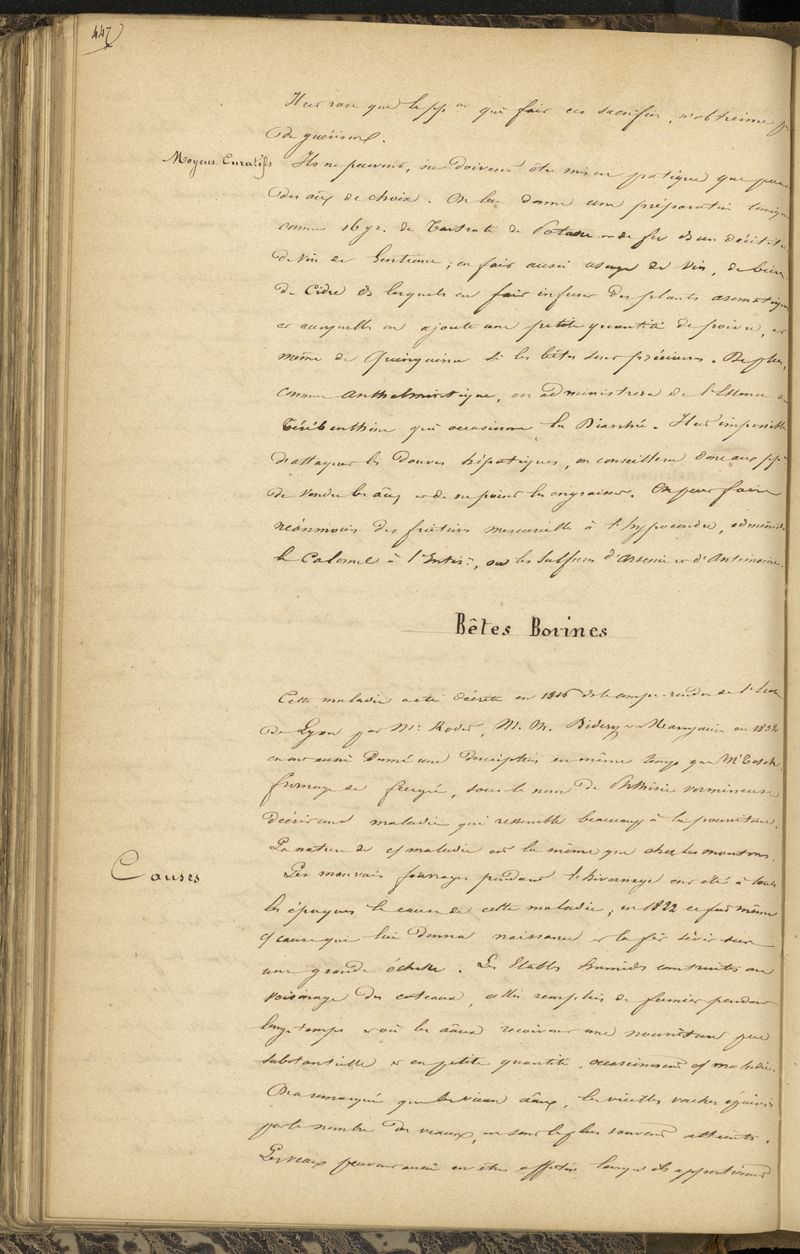 447
Il est rare que le pp.re qui fait ces sacrifices, n'obtienne p
de guérison.
Moyens Curatifs Ils ne peuvent, ne doivent être mis en pratique que pour
des aux de choix. On leur donne une préparation tonique
comme 16 gr. de Tartrate de Potasse et de fer ds un décilitre
de vin de Gentiane; on fait aussi usage de vin, de bière
de Cidre ds lesquels on fait infuser des plantes aromatiques
et auxquelles on ajoute une petite quantité de poivre, et
même de Quinquina si les bêtes sont précieuses. De plus,
comme anthelmintique, on administrera de l'Essence de
Térébenthine qui occasionne la Diarrhée. Il est impossible
d'attaquer les Douves hépatiques, on conseillera donc aux pp.res
de vendre les aux et de ne point les engraisser. On peut faire
néanmoins des frictions mercurielles à l'hypocondre, administrer
le Calomel à l'Intér.r, ou les Sulfures d'Arsenic et d'Antimoine.
Bêtes Bovines
Cette maladie a été décrite en 1816 ds le compte-rendu de l'Ecole
de Lyon par Mr. Rodet, M. M. en 1832
en ont aussi donné une description en même temps que Mr
fromage de feugré, sous le nom de Phthisie vermineuse
décrivent maladie qui ressemble beaucoup à la pourriture.
La nature de c/ maladie est la même que chez les moutons.
Causes Les mauvais fourrages pendant l'hivernage ont été à toutes
les époques la cause de cette maladie; en 1822 ce fut même
c/ cause qui lui donna naissance et la fit sévir sur
une grande échelle. Les Etables humides construites au
voisinage des coteaux, celles remplies de fumier pendant
long-temps et où les aux reçoivent une nourriture peu
substantielle et en petite quantité, occasionnent c/ maladie.
On a remarqué que les vieux aux, les vieilles vaches épuisées
par le nombre de veaux, en sont le plus souvent atteints.
Les veaux peuvent aussi en être affectés lorsqu'ils appartiennent